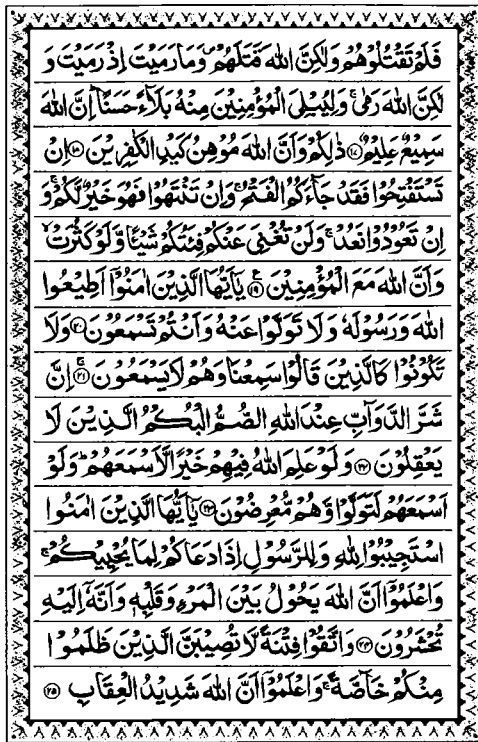 فَلَمْ تَقْتُلُوْهُمْ وَلٰكِنَّ اللّٰهَ قَتَلَهُمْ ۪ وَمَا رَمَيْتَ اِذْ رَمَيْتَ وَ
لٰكِنَّ اللّٰهَ رَمٰى ۚ وَلِيُبْلِىَ الْمُؤْمِنِيْنَ مِنْهُ بَلَآءً حَسَنًا ؕ اِنَّ اللّٰهَ
سَمِيْعٌ عَلِيْمٌ ۝۱۷ ذٰلِكُمْ وَاَنَّ اللّٰهَ مُوْهِنُ كَيْدِ الْكٰفِرِيْنَ ۝۱۸ اِنْ
تَسْتَفْتِحُوْا فَقَدْ جَآءَكُمُ الْفَتْحُ ۚ وَاِنْ تَنْتَهُوْا فَهُوَ خَيْرٌ لَّكُمْ ۚ وَ
اِنْ تَعُوْدُوْا نَعُدْ ۚ وَلَنْ تُغْنِىَ عَنْكُمْ فِئَتُكُمْ شَيْـًٔا وَّلَوْ كَثُرَتْ ۙ
وَاَنَّ اللّٰهَ مَعَ الْمُؤْمِنِيْنَ ۝۱۹ يٰۤاَيُّهَا الَّذِيْنَ اٰمَنُوْۤا اَطِيْعُوا
اللّٰهَ وَرَسُوْلَهٗ وَلَا تَوَلَّوْا عَنْهُ وَاَنْتُمْ تَسْمَعُوْنَ ۝۲۰ وَلَا
تَكُوْنُوْا كَالَّذِيْنَ قَالُوْا سَمِعْنَا وَهُمْ لَا يَسْمَعُوْنَ ۝۲۱ اِنَّ
شَرَّ الدَّوَآبِّ عِنْدَ اللّٰهِ الصُّمُّ الْبُكْمُ الَّذِيْنَ لَا
يَعْقِلُوْنَ ۝۲۲ وَلَوْ عَلِمَ اللّٰهُ فِيْهِمْ خَيْرًا لَّاَسْمَعَهُمْ ؕ وَلَوْ
اَسْمَعَهُمْ لَتَوَلَّوْا وَّهُمْ مُّعْرِضُوْنَ ۝۲۳ يٰۤاَيُّهَا الَّذِيْنَ اٰمَنُوا
اسْتَجِيْبُوْا لِلّٰهِ وَلِلرَّسُوْلِ اِذَا دَعَاكُمْ لِمَا يُحْيِيْكُمْ ۚ
وَاعْلَمُوْۤا اَنَّ اللّٰهَ يَحُوْلُ بَيْنَ الْمَرْءِ وَقَلْبِهٖ وَاَنَّهٗۤ اِلَيْهِ
تُحْشَرُوْنَ ۝۲۴ وَاتَّقُوْا فِتْنَةً لَّا تُصِيْبَنَّ الَّذِيْنَ ظَلَمُوْا
مِنْكُمْ خَآصَّةً ۚ وَاعْلَمُوْۤا اَنَّ اللّٰهَ شَدِيْدُ الْعِقَابِ ۝۲۵